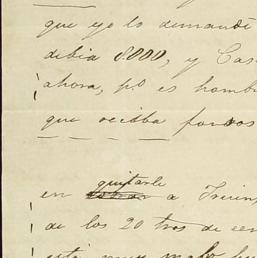 que yo lo demandé
debia 8.000, y Cas
ahora, pº es homb
que reciba fondos
quitarle
en a Irein
de los 20 tros de cen
está muy malo